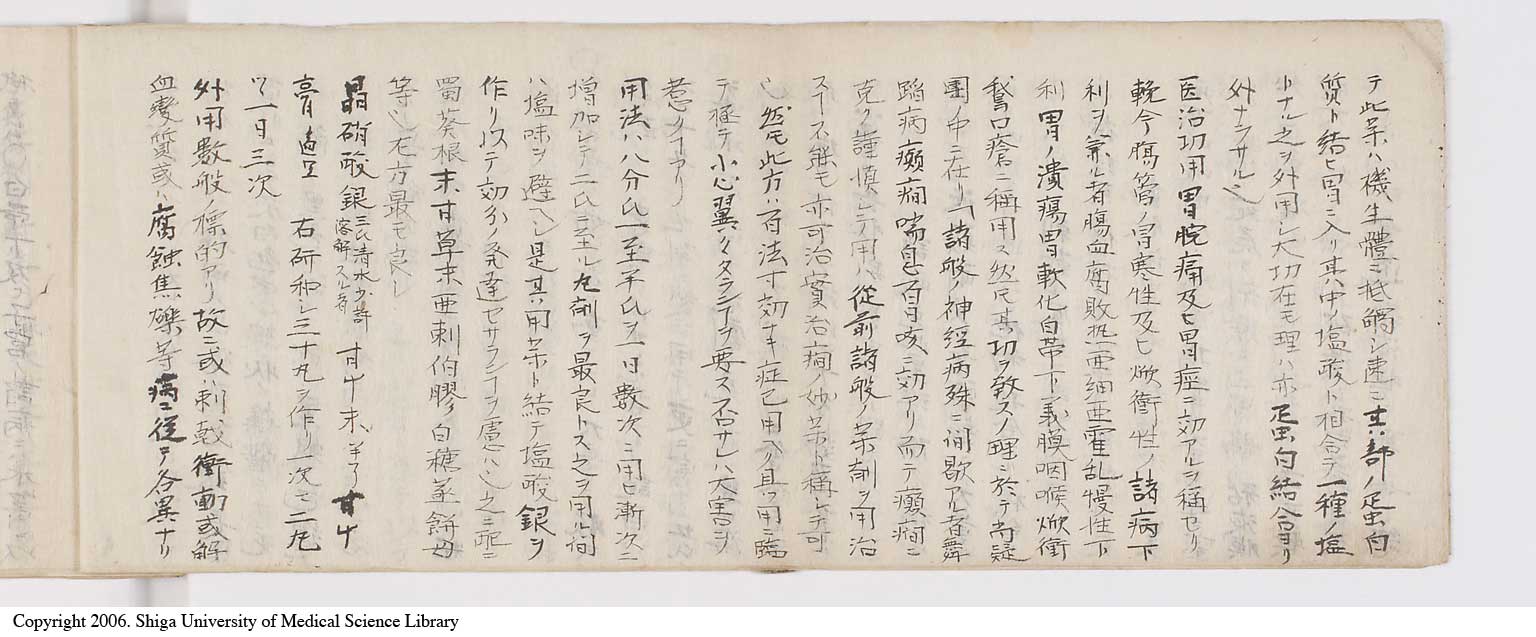 テ此薬ハ機生體ニ抵觸シ速ニ其部ノ蛋白
質ト結ヒ胃ニ入リ其中ノ塩酸ト相合テ一種ノ塩
トナル之ヲ外用シ大切在モ理ハ亦蛋白結合ヨリ
外ナラサル也
医治切用胃脘痛及ヒ胃痙ニ効アルヲ稱セリ
輓今腸管ノ胃寒性及ヒ焮衝性ノ諸病下
利ヲ兼ル者腸血腐敗熱亜細亜霍乱慢性下
利胃ノ潰瘍胃軟化白帯下義膜咽喉焮衝
鵞口瘡ニ稱用ス然圧其切ヲ致スノ理ニ於テ尚疑
團ノ中ニ在リ「諸般ノ神經病殊ニ间歇アル者舞
蹈病癲癇喘息百日咳ニ効アリ而テ癲癇ニ
克ク謹慎シテ用ハ従前諸般ノ薬剤ヲ用治
スヿ不能モ亦可治實治癇ノ妙薬ト稱シテ可
也然モ此方ハ百法寸効ナキ症已用ヘリ其用ニ臨
テ極テ小心翼々タランヿヲ要ス否サレハ大害ヲ
惹クヿアリ
用法ハ八分氏一至半氏ヲ一日数次ニ用ヒ漸次ニ
増加シテ二氏ニ至ル丸剤ヲ最良トス之ヲ用ル间
ハ塩味ヲ避ヘシ是其用薬ト結テ塩酸銀ヲ
作リ以テ効分ノ発達セサランヿヲ慮ハ也之ニ配ニ
蜀葵根末甘草末亜剌伯膠白糖蒸餅母
等也左方最モ良シ
晶硝酸銀 三氏清水少許溶解スル者 甘艸末 半了 甘艸
膏 適宜 右研和シ三十丸ヲ作リ一次ニ二丸
ツヽ一日三次
外用数般ノ標的アリ故ニ或ハ刺戟衝動或解
血変質或ハ腐蝕焦礫等病ニ従テ各異ナリ
Copyright 2006. Shiga University of Medical Science Library